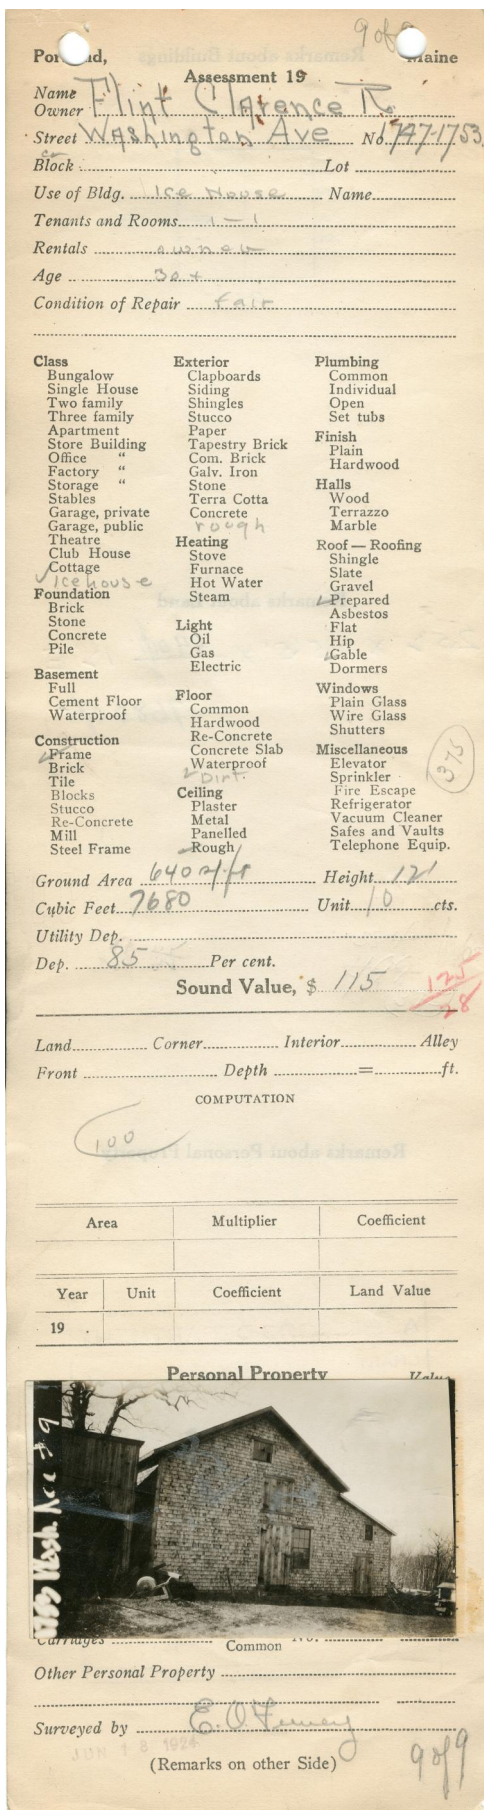 9 of 9
Portland, Maine
Assessment 19
Name
Owner Flint Clarence R.
Street Washington Ave No. 1747-1753
Block Lot
Use of Bldg. Ice House Name
Tenants and Rooms 1-1
Rentals owner
Age 30+
Condition of Repair Fair
Class
Bungalow
Single House
Two family
Three family
Apartment
Store Building
Office "
Factory "
Storage "
Stables
Garage, private
Garage, public
Theatre
Club House
Cottage
✓ Icehouse
Foundation
Brick
Stone
Concrete
Pile
Basement
Full
Cement Floor
Waterproof
Construction
✓ Frame
Brick
Tile
Blocks
Stucco
Re-Concrete
Mill
Steel Frame
Exterior
Clapboards
Siding
Shingles
Stucco
Paper
Tapestry Brick
Com. Brick
Galv. Iron
Stone
Terra Cotta
Concrete
rough
Heating
Stove
Furnace
Hot Water
Steam
Light
Oil
Gas
Electric
Floor
Common
Hardwood
Re-Concrete
Concrete Slab
Waterproof
✓ Dirt.
Ceiling
Plaster
Metal
Panelled
✓ Rough
Plumbing
Common
Individual
Open
Set tubs
Finish
Plain
Hardwood
Halls
Wood
Terrazzo
Marble
Roof — Roofing
Shingle
Slate
Gravel
✓ Prepared
Asbestos
Flat
Hip
✓ Gable
Dormers
Windows
Plain Glass
Wire Glass
Shutters
Miscellaneous
Elevator
Sprinkler
Fire Escape
Refrigerator
Vacuum Cleaner
Safes and Vaults
Telephone Equip.
375
Ground Area 640 Height 12'
Cubic Feet 7680 Unit 10 cts.
Utility Dep.
Dep. 85 Per cent.
Sound Value, $ 115
125
28
Land Corner Interior Alley
Front Depth = ft.
COMPUTATION
100
Area Multiplier Coefficient
Year Unit Coefficient Land Value
19 .
Personal Property Value
Carriages No.
Common
Other Personal Property
Surveyed by
JUN 18 1924
(Remarks on other Side)
9 of 9